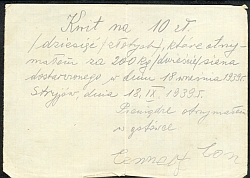 Kwit na 10 zł.
/dziesięć/ złotych, które otrzy-
małem za 200 kg /dwieście/ siana
dostarczonego w dniu 18 września 1939r.
Stryjów, dnia 18. IX. 1939r.
Pieniądze otrzymałem
w gotówce